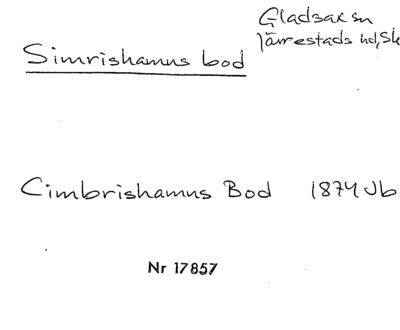 Gladsax sn
Järrestads hd, Sk
Simrishamns bod
Cimbrishamns Bod 1874 Jb
Nr 17857